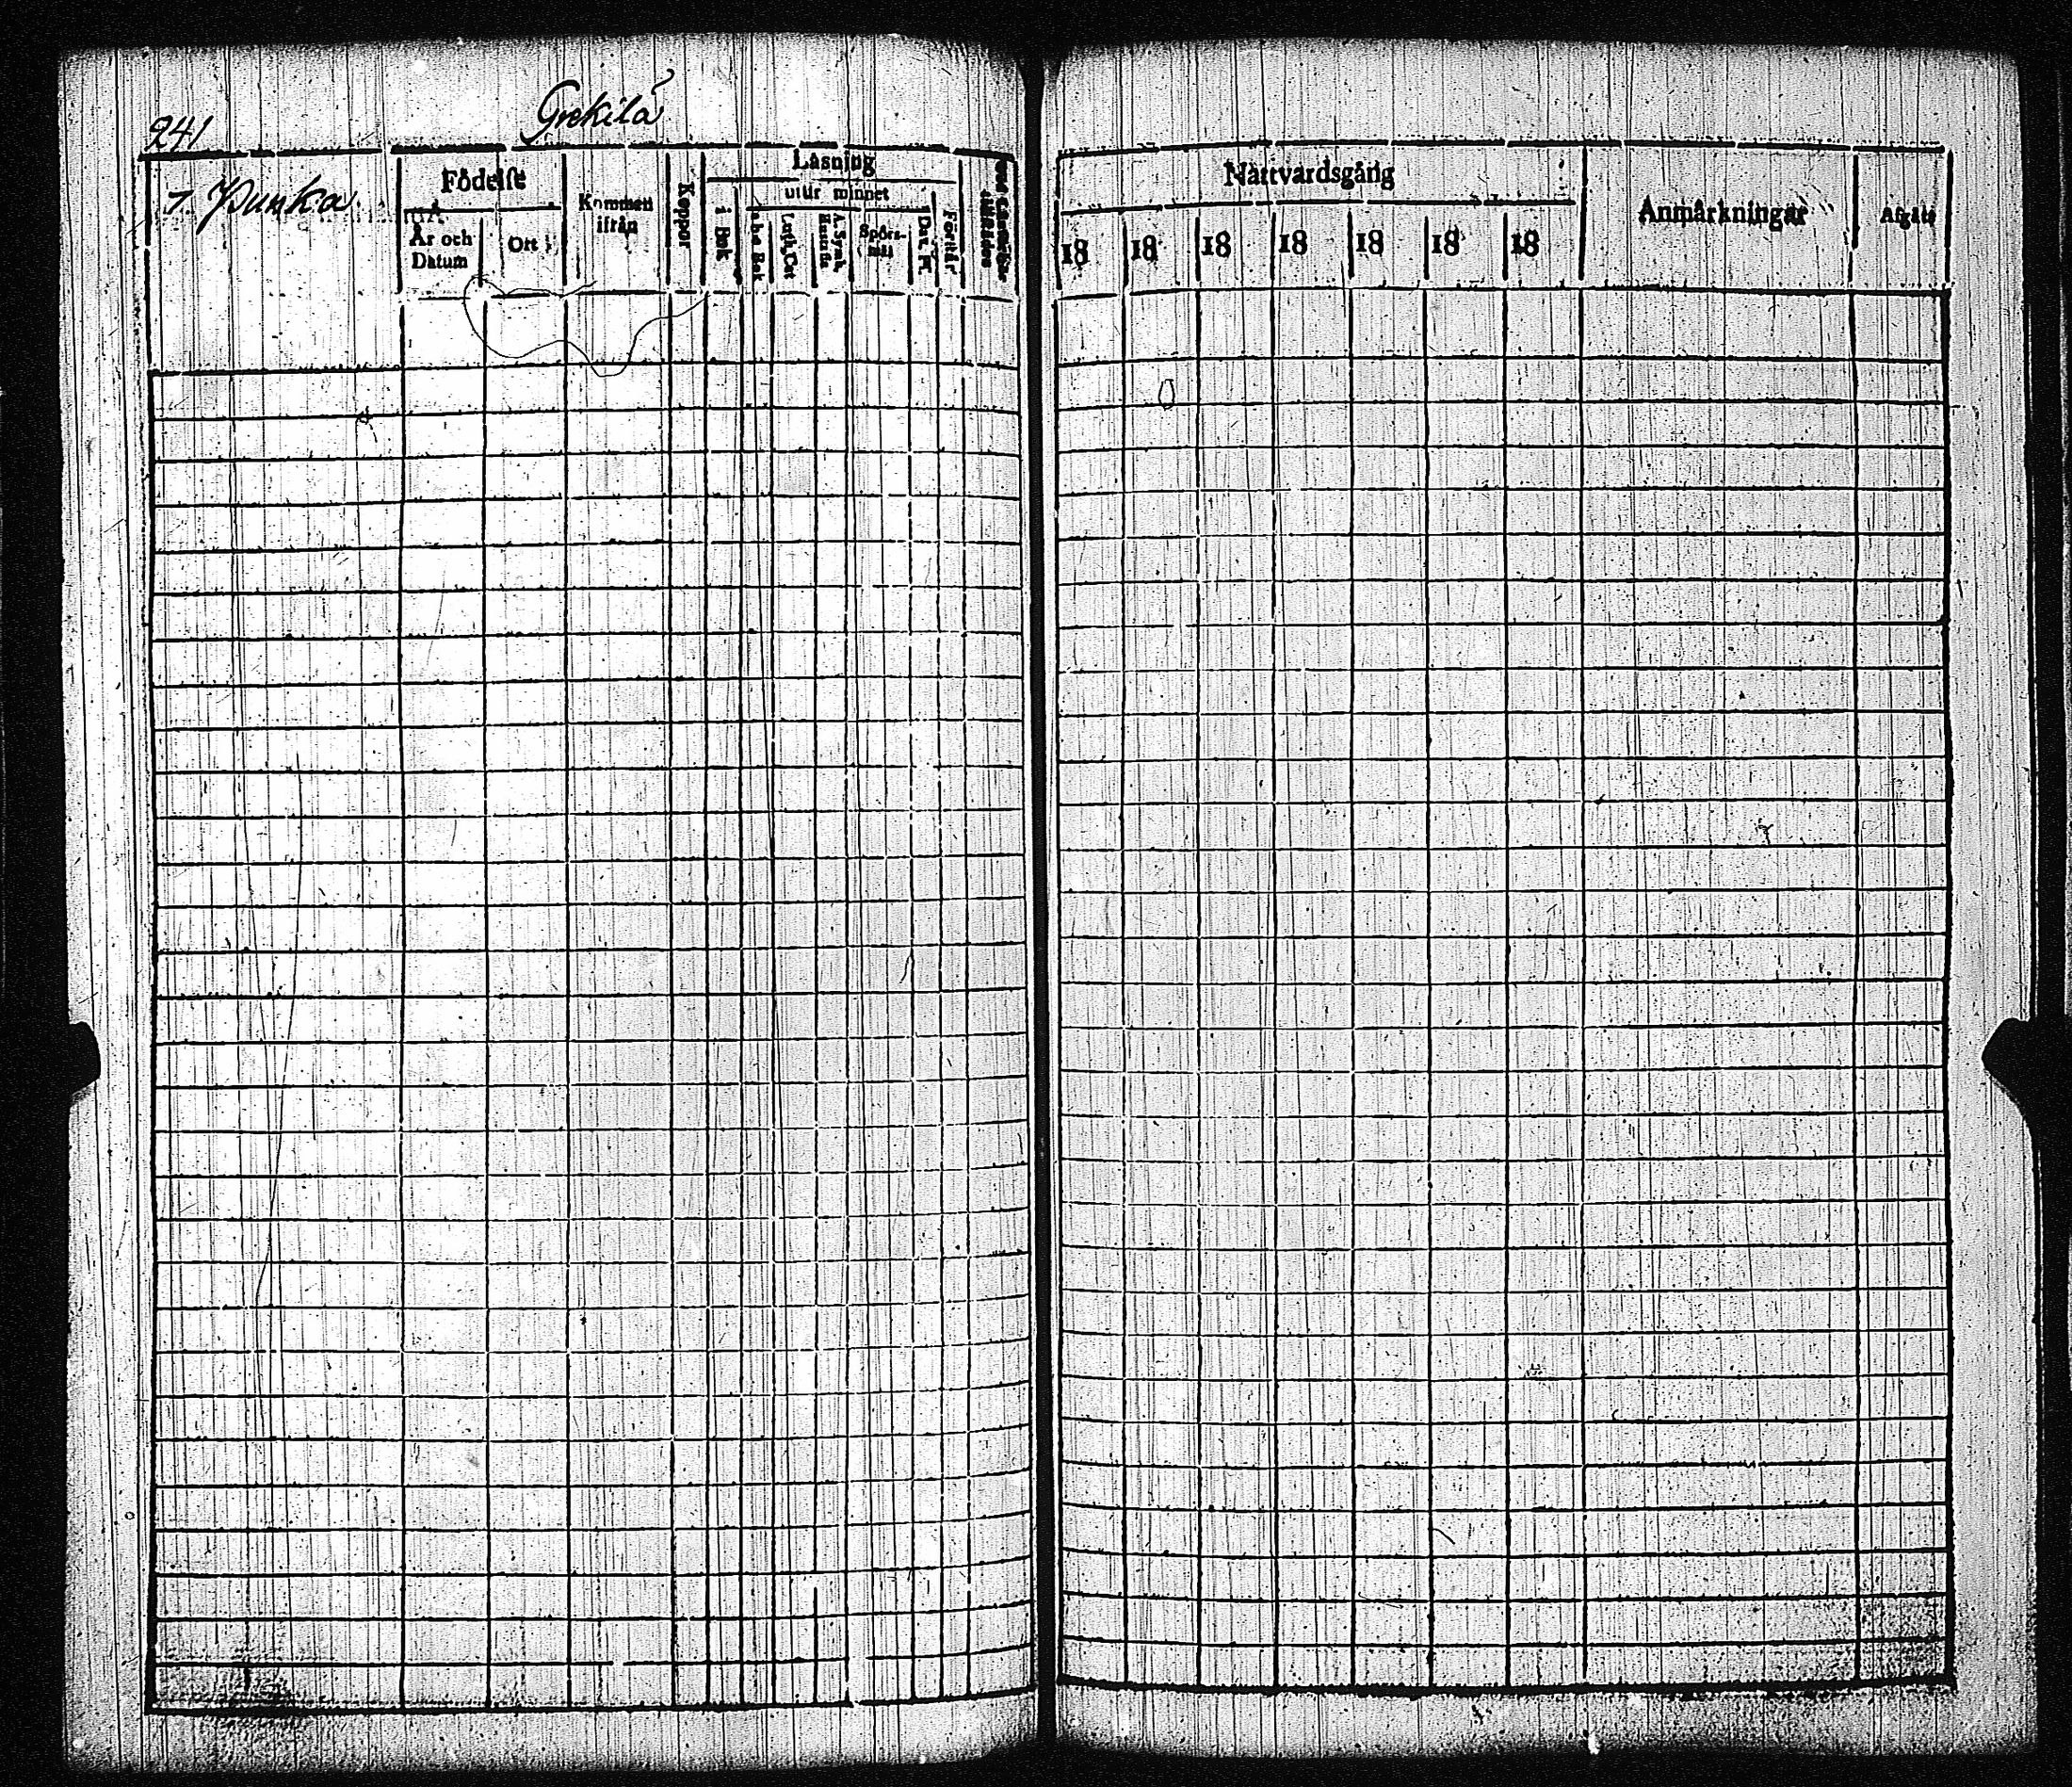 241
Grekilä
7 Punka
Födelse
År och Datum
Ort
Kommen ifrån
Koppor
Läsning
i Bok
utur minnet
a b c Bok
Luth. Cat
A. Symb. Hustafla
Spörsmål
Dav. Ps.
Förstår
Nattvardsgång
18 18 18 18 18 18 18
Anmärkningar
Afgått